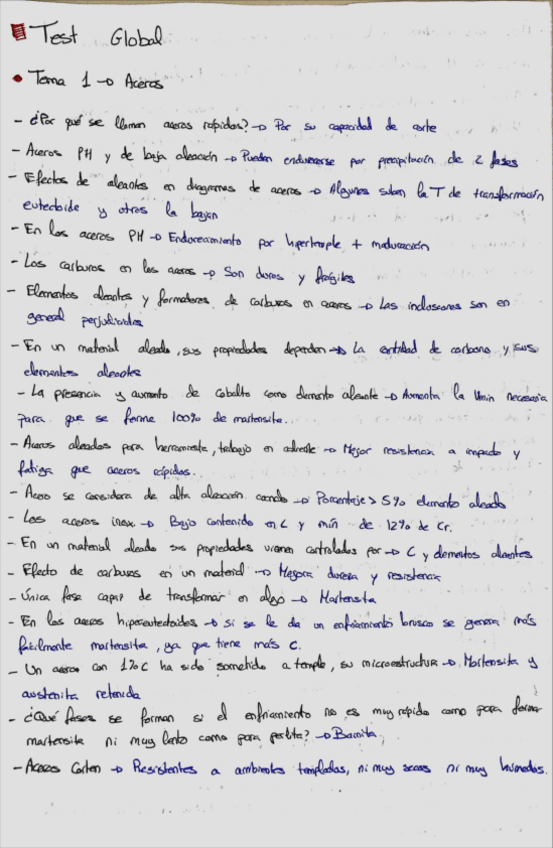 Test Global
• Tema 1 → Aceros
- ¿Por qué se llaman aceros rápidos? → Por su capacidad de corte
- Aceros PH y de baja aleación → Pueden endurecerse por precipitación de 2 fases
- Efectos de aleantes en diagramas de aceros → Algunos suben la T de transformación
eutectoide y otros la bajan
- En los aceros PH → Endurecimiento por hipertemple + maduración
- Los carburos en los aceros → Son duros y frágiles
- Elementos aleantes y formadores de carburos en aceros → Las inclusiones son en
general perjudiciales
- En un material aleado, sus propiedades dependen → La cantidad de carbono y sus
elementos aleantes
- La presencia y aumento de cobalto como elemento aleante → Aumenta la Vmin necesaria
para que se forme 100% de martensita.
- Aceros aleados para herramienta, trabajo en caliente → Mejor resistencia a impacto y
fatiga que aceros rápidos.
- Acero se considera de alta aleación cuando → Porcentaje > 5% elemento aleado
- Los aceros inox. → Bajo contenido en C y mín de 12% de Cr.
- En un material aleado sus propiedades vienen controlados por → C y elementos aleantes
- Efecto de carburos en un material → Mejora dureza y resistencia
- Única fase capaz de transformar en algo → Martensita
- En los aceros hipereutectoides → si se le da un enfriamiento brusco se genera más
fácilmente martensita, ya que tiene más C.
- Un acero con 1%C ha sido sometido a temple, su microestructura → Martensita y
austenita retenida
- ¿Qué fases se forman si el enfriamiento no es muy rápido como para formar
martensita ni muy lento como para perlita? → Bainita
- Aceros Corten → Resistentes a ambientes templados, ni muy secos ni muy húmedos.